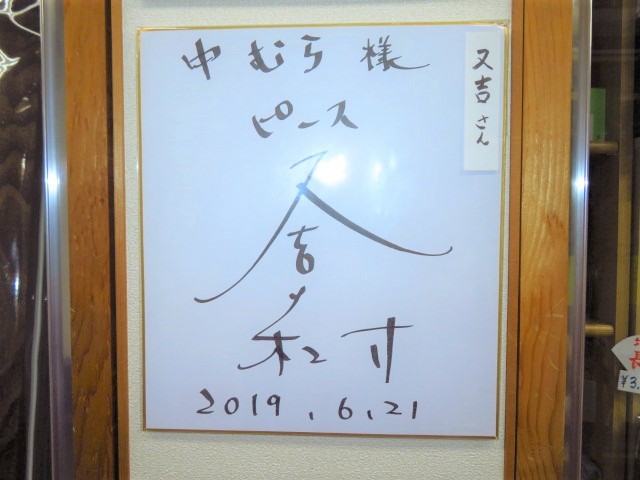 中むら様
ピース
又吉
直樹
2019.6.21
又吉さん
¥3,